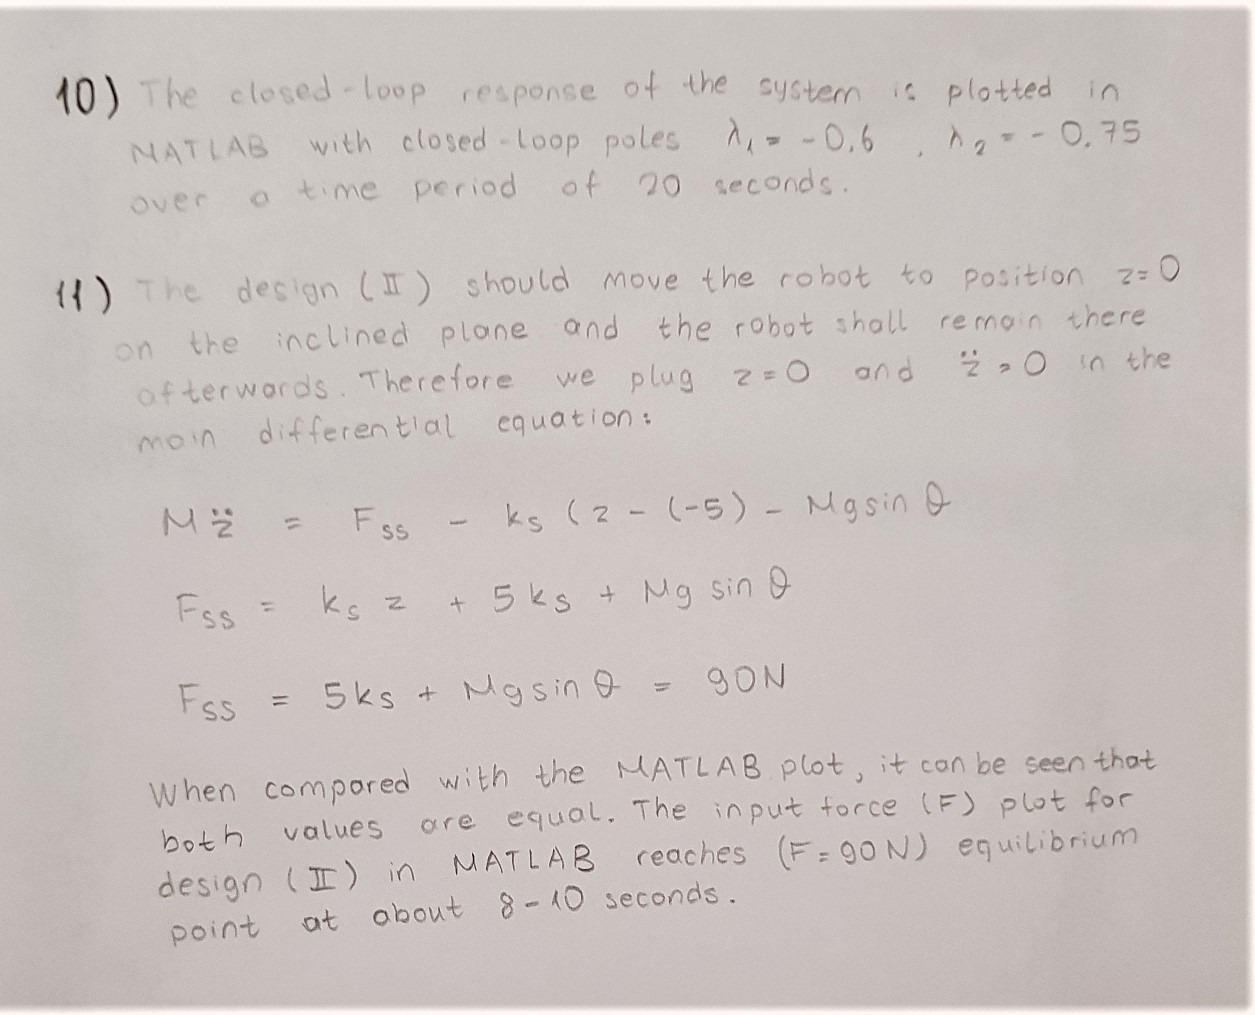 10) The closed-loop response of the system is plotted in
MATLAB with closed-loop poles λ₁ = -0,6 , λ₂ = -0,75
over a time period of 20 seconds.
11) The design (II) should move the robot to position z=0
on the inclined plane and the robot shall remain there
afterwards. Therefore we plug z=0 and z̈=0 in the
main differential equation:
Mz̈ = Fss - ks (z - (-5) - Mgsin θ
Fss = ks z + 5ks + Mg sin θ
Fss = 5ks + Mgsin θ = 90N
When compared with the MATLAB plot, it can be seen that
both values are equal. The input force (F) plot for
design (II) in MATLAB reaches (F=90N) equilibrium
point at about 8-10 seconds.